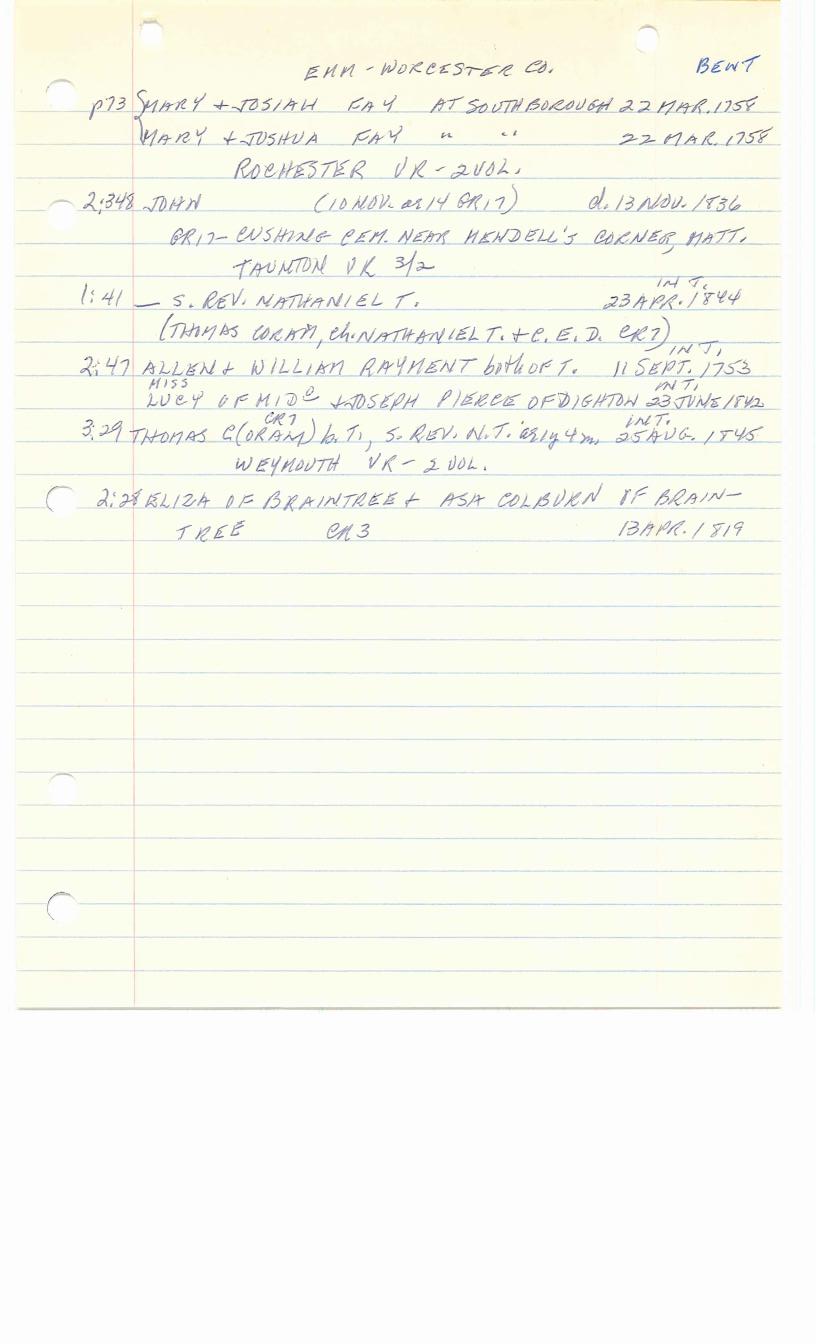 EMM - WORCESTER CO. BENT
p73 { MARY + JOSIAH FAY AT SOUTHBOROUGH 22 MAR. 1758
MARY + JOSHUA FAY " " 22 MAR. 1758
ROCHESTER VR - 2 VOL.
2:348 JOHN (10 NOV. a14 GR17) d. 13 NOV. 1836
GR17 - CUSHING CEM. NEAR MENDELL'S CORNER, MATT.
TAUNTON VR 3/2
INT.
1:41 — S. REV. NATHANIEL T. 23 APR. 1844
(THOMAS CORAM, Ch. NATHANIEL T. + C. E. D. CR7)
INT.
2:47 ALLEN + WILLIAM RAYMENT both OF T. 11 SEPT. 1753
MISS INT.
LUCY OF MIDO + JOSEPH PIERCE OF DIGHTON 23 JUNE 1842
CR7 INT.
3:29 THOMAS C(ORAM) b. T., S. REV. N.T. a1y 4m. 25 AUG. 1845
WEYMOUTH VR - 2 VOL.
2:28 ELIZA OF BRAINTREE + ASA COLBURN OF BRAIN-
TREE CR3 13 APR. 1819